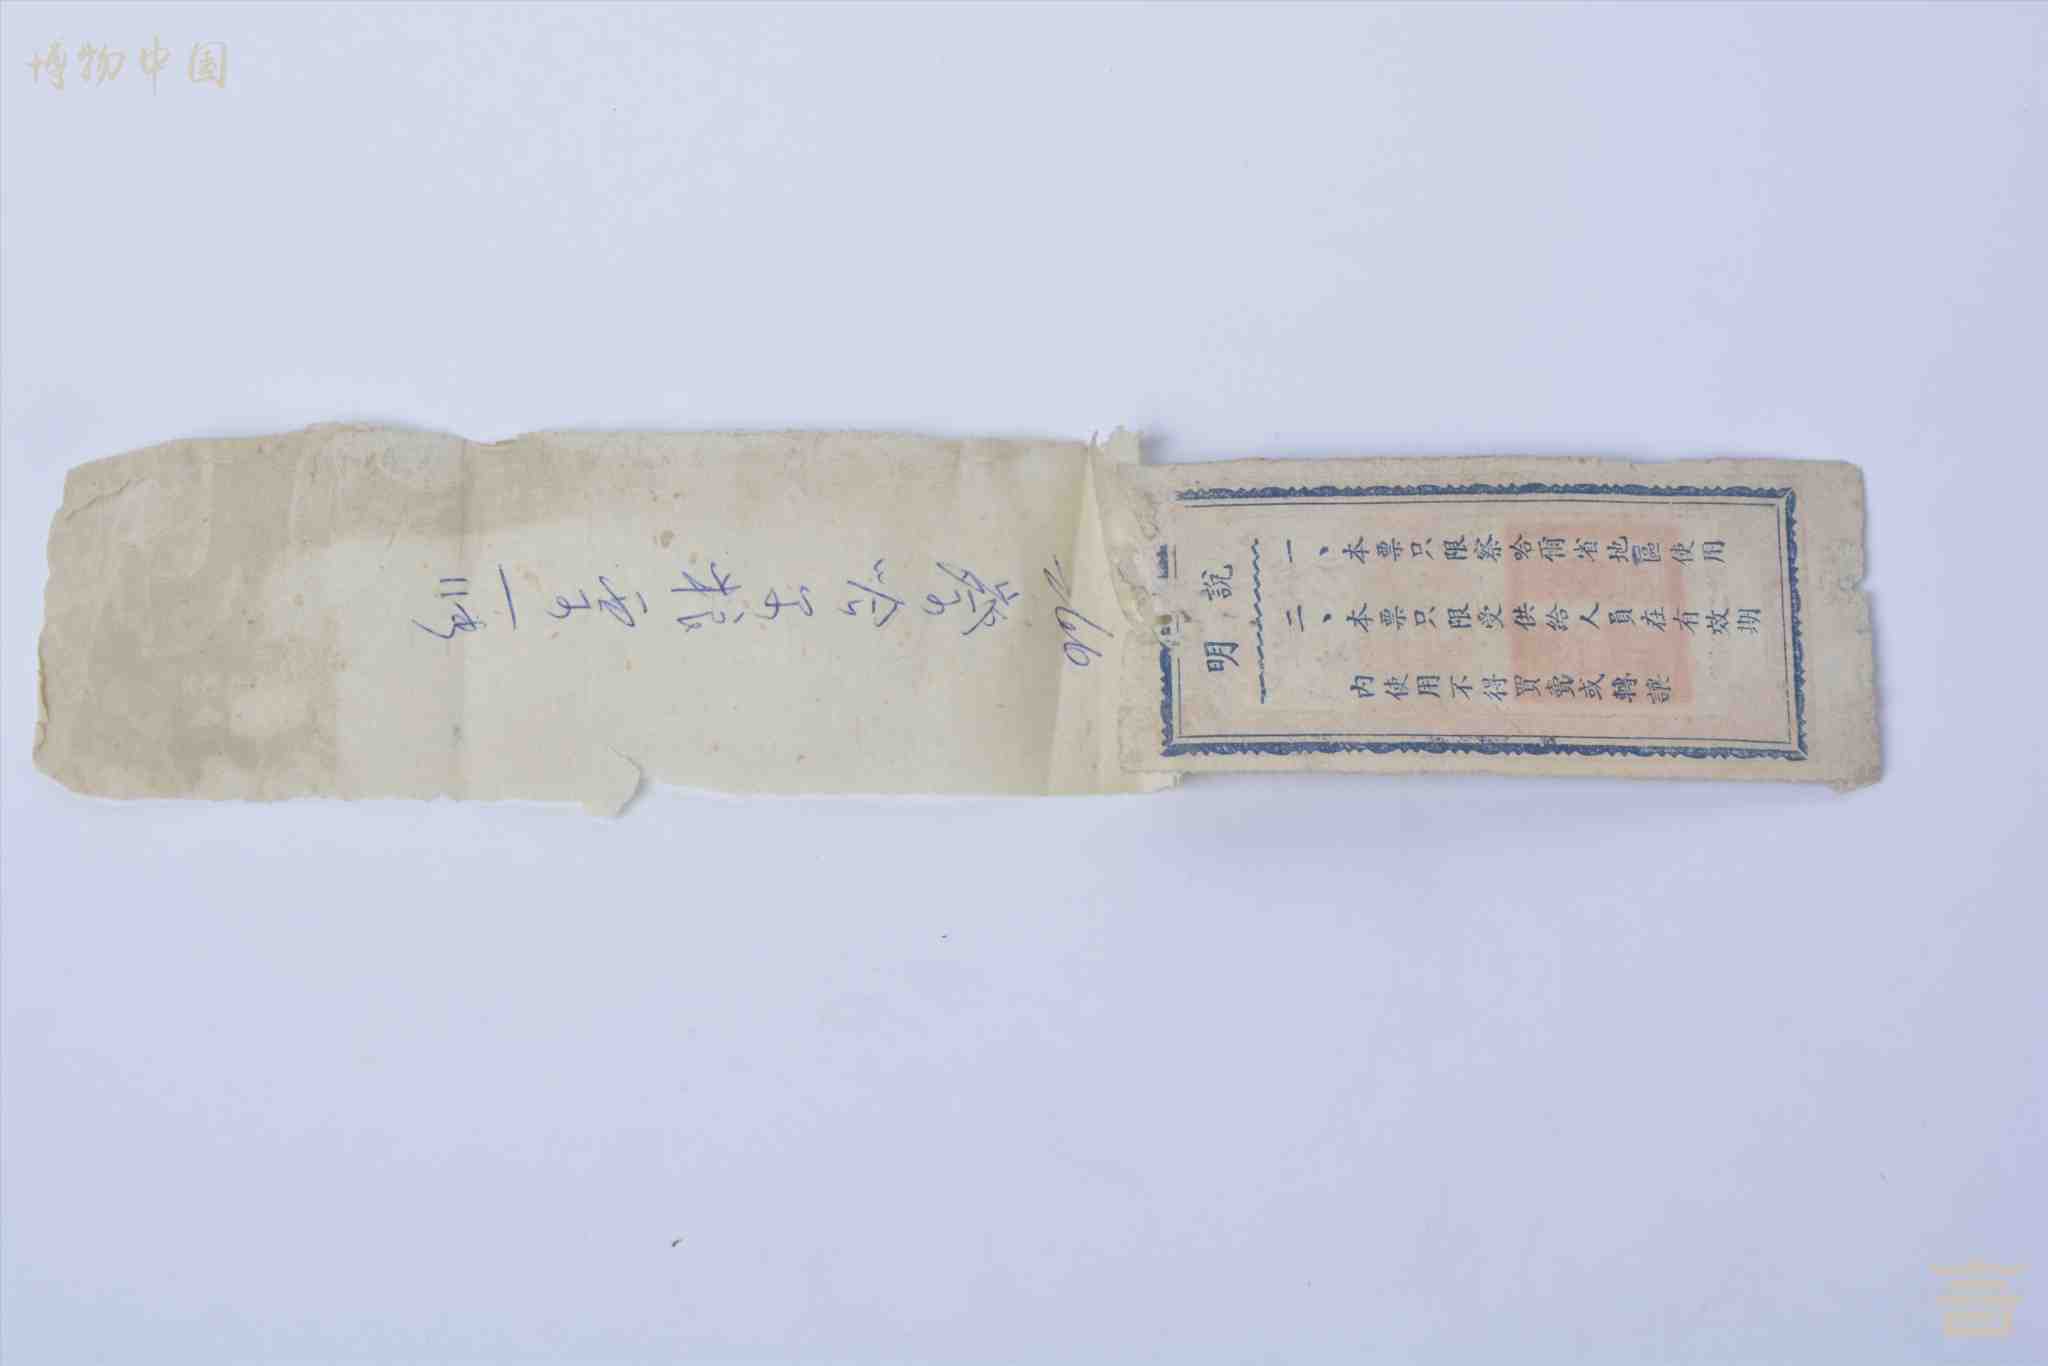 博物中国
說明
一、本票只限察哈爾省地區使用
二、本票只限受供給人員在有效期
內使用不得買賣或轉讓
察哈尔粮票一